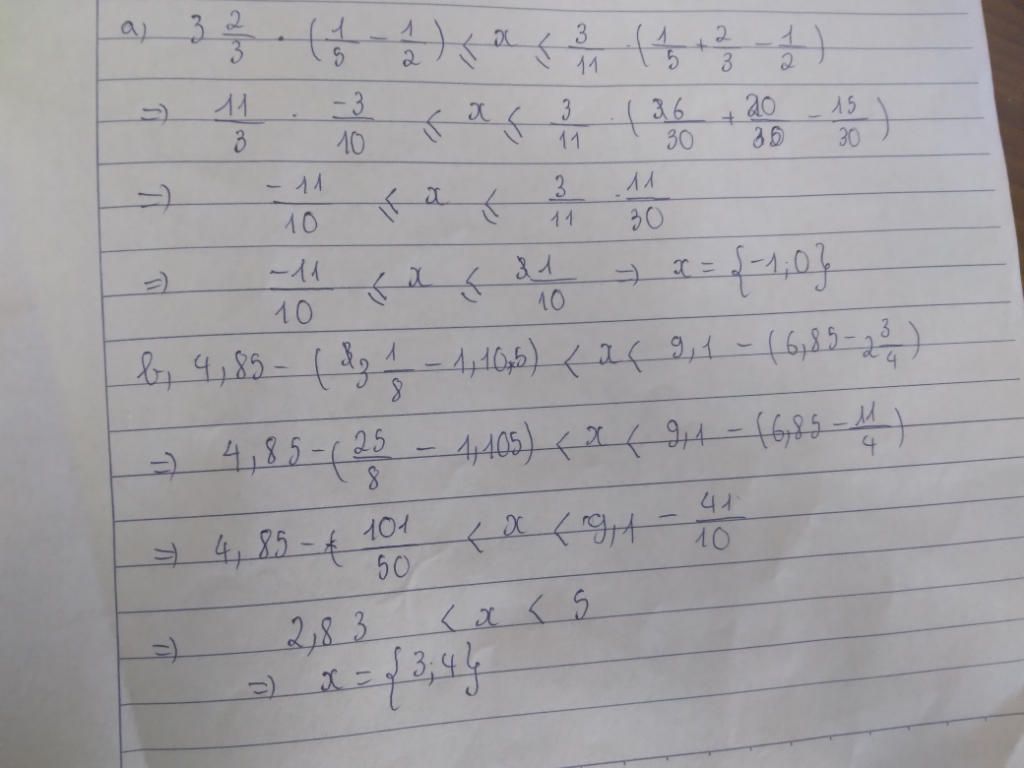 a) 3 2/3 · (1/5 - 1/2) ≤ x ≤ 3/11 · (1/5 + 2/3 - 1/2)
=) 11/3 · -3/10 ≤ x ≤ 3/11 · (36/30 + 20/30 - 15/30)
=) -11/10 ≤ x ≤ 3/11 · 11/30
=) -11/10 ≤ x ≤ 1/10 =) x = {-1;0}
b, 4,85 - (3 1/8 - 1,10,5) < x < 9,1 - (6,85 - 2 3/4)
=) 4,85 - (25/8 - 1,105) < x < 9,1 - (6,85 - 11/4)
=) 4,85 - 101/50 < x < 9,1 - 41/10
=) 2,83 < x < 5
=) x = {3;4}